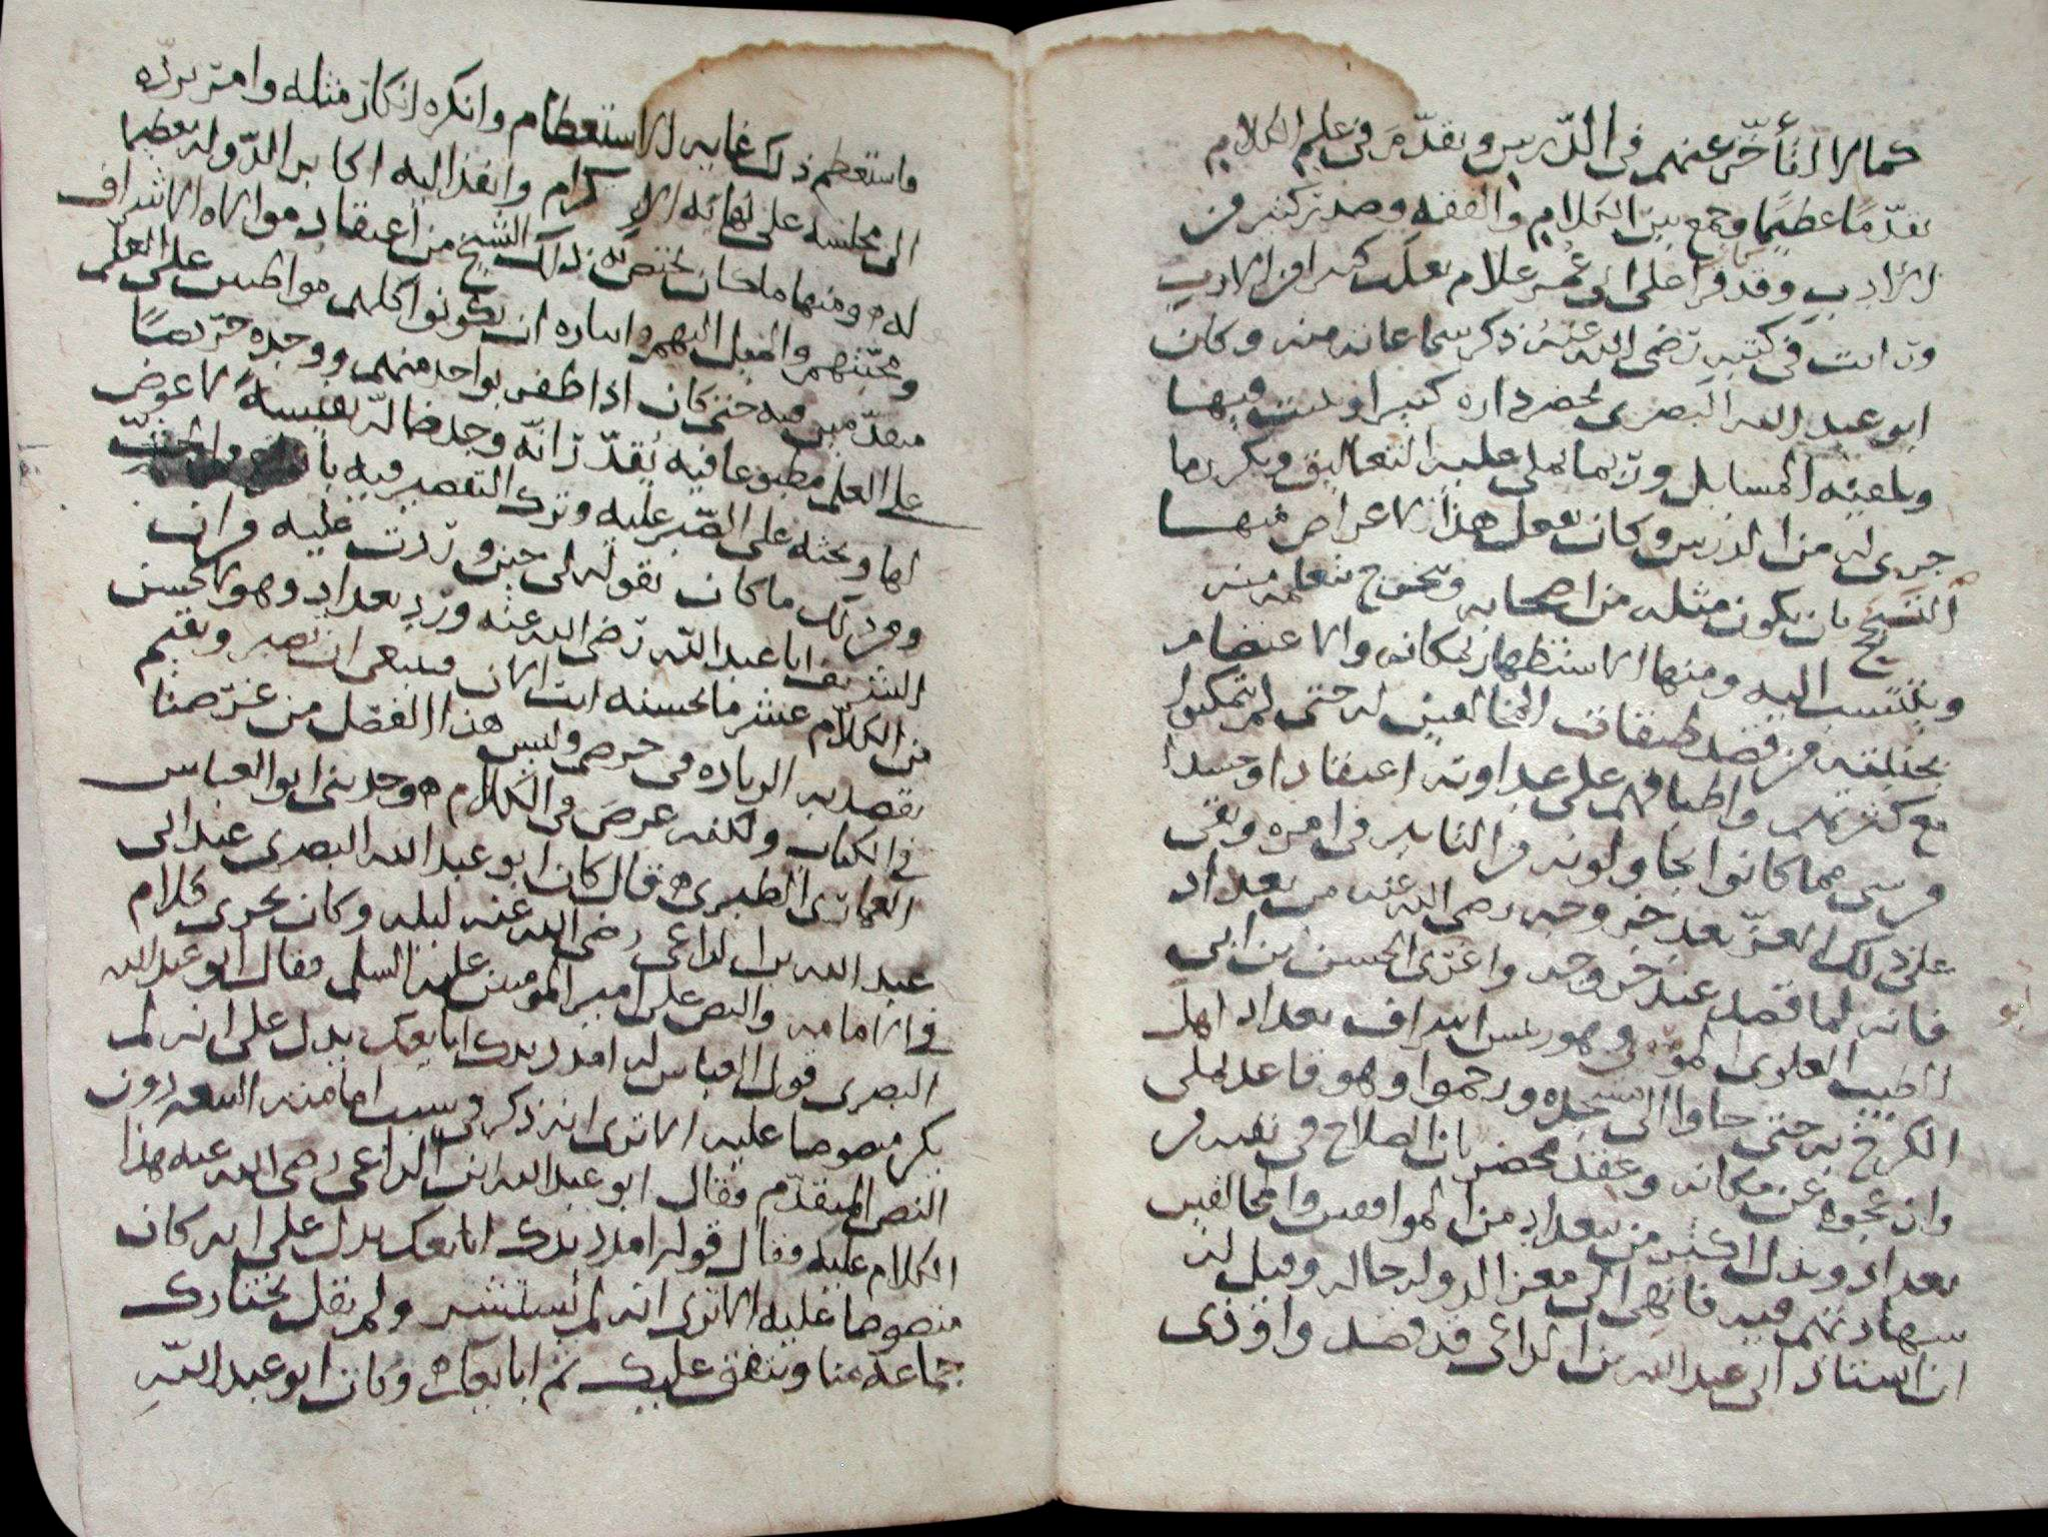 كمالا لا تأخر عنهم في الدرس وتقدم في علم الكلام
تقدما عظيما وجمع بين الكلام والفقه وصدر كثير من
الادب وقد قرا على ابي عمر غلام ثعلب كثيرا من الادب
ورايت في كتبه رضي الله عنه ذكر سماعاته منه وكان
ابو عبد الله البصري يحضر داره كثيرا ويبيت فيها
ويلقنه المسايل وربما يملي عليه التعاليق ويكرر ما
جرى له من الدرس وكان يفعل هذا لاغراض منها
التبجح بان يكون مثله من اصحابه ويتخرج بتعلمه منه
وينتسب اليه ومنها الاستظهار بمكانه والاعتضام
بجنبته من قصد طبقات المخالفين له حتى لم يتمكنوا
مع كثرتهم واطباقهم على عداوته اعتقادا وحسدا
من شي مما كانوا يحاولونه من التاثير في امره وبقي
على ذلك العز بعد خروجه رضي الله عنه من بغداد
فانه لما قصد عند خروجه واغرى الحسن بن ابي
الطيب العلوي الموسوي وهو رئيس اشراف بغداد اهل
الكرخ به حتى جاوا الى مسجده ورجموا وهو قاعد يملي
وازعجوه عن مكانه وعقد محضر بان الصلاح في نفيه من
بغداد وبذل اكثر من ببغداد من الموافقين والمخالفين
شهادتهم فيه فانهى الى معز الدوله حاله وقيل له
ان استاذ ابي عبد الله بن الداعي قد قصد واوذي
فاستعظم ذلك غايه الاستعظام وانكره انكار مثله وامر برده
الى مجلسه على نهايه الاكرام وانفذ اليه اكابر الدوله تعظيما
له ومنها ما كان يختص به ذلك الشيخ من اعتقاد موالاه الاشراف
ومحبتهم والميل اليهم وايثاره ان يكونوا كلهم مواظبين على العلم
متقدمين فيه حتى كان اذا ظفر بواحد منهم ووجده حريصا
على العلم مطبوعا فيه يقدر انه وجد ضاله نفيسة لا عوض
لها ويحثه على الصبر عليه وترك التقصير فيه
ومن ذلك ما كان يقوله لي حين وردت عليه وان
الشريف ابا عبد الله رضي الله عنه ورد بغداد وهو لا يحسن
من الكلام عشر ما تحسنه انت الان فينبغي ان تصبر وتقيم
يقصد به الزياده في حرصي وليس هذا الفصل من غرضنا
في الكتاب ولكنه عرض في الكلام ه وحدثني ابو العباس
العماري الطبري ه قال كان ابو عبد الله البصري عند ابي
عبد الله بن الداعي رضي الله عنه ليله وكان يجري كلام
في الامامه والنص على امير المومنين عليه السلم فقال ابو عبد الله
البصري قول العباس له امدد يدك ابايعك يدل على انه لم
يكن منصوصا عليه الا ترى انه ذكر في سبب امامته البيعه دون
النص المتقدم فقال ابو عبد الله ابن الداعي رضي الله عنه هذا
الكلام عليه فقال قوله امدد يدك ابايعك يدل على انه كان
منصوصا عليه الا ترى انه لم يستشر ولم يقل نختارك
جماعة منا ونتفق عليك ثم ابايعك ه وكان ابو عبد الله